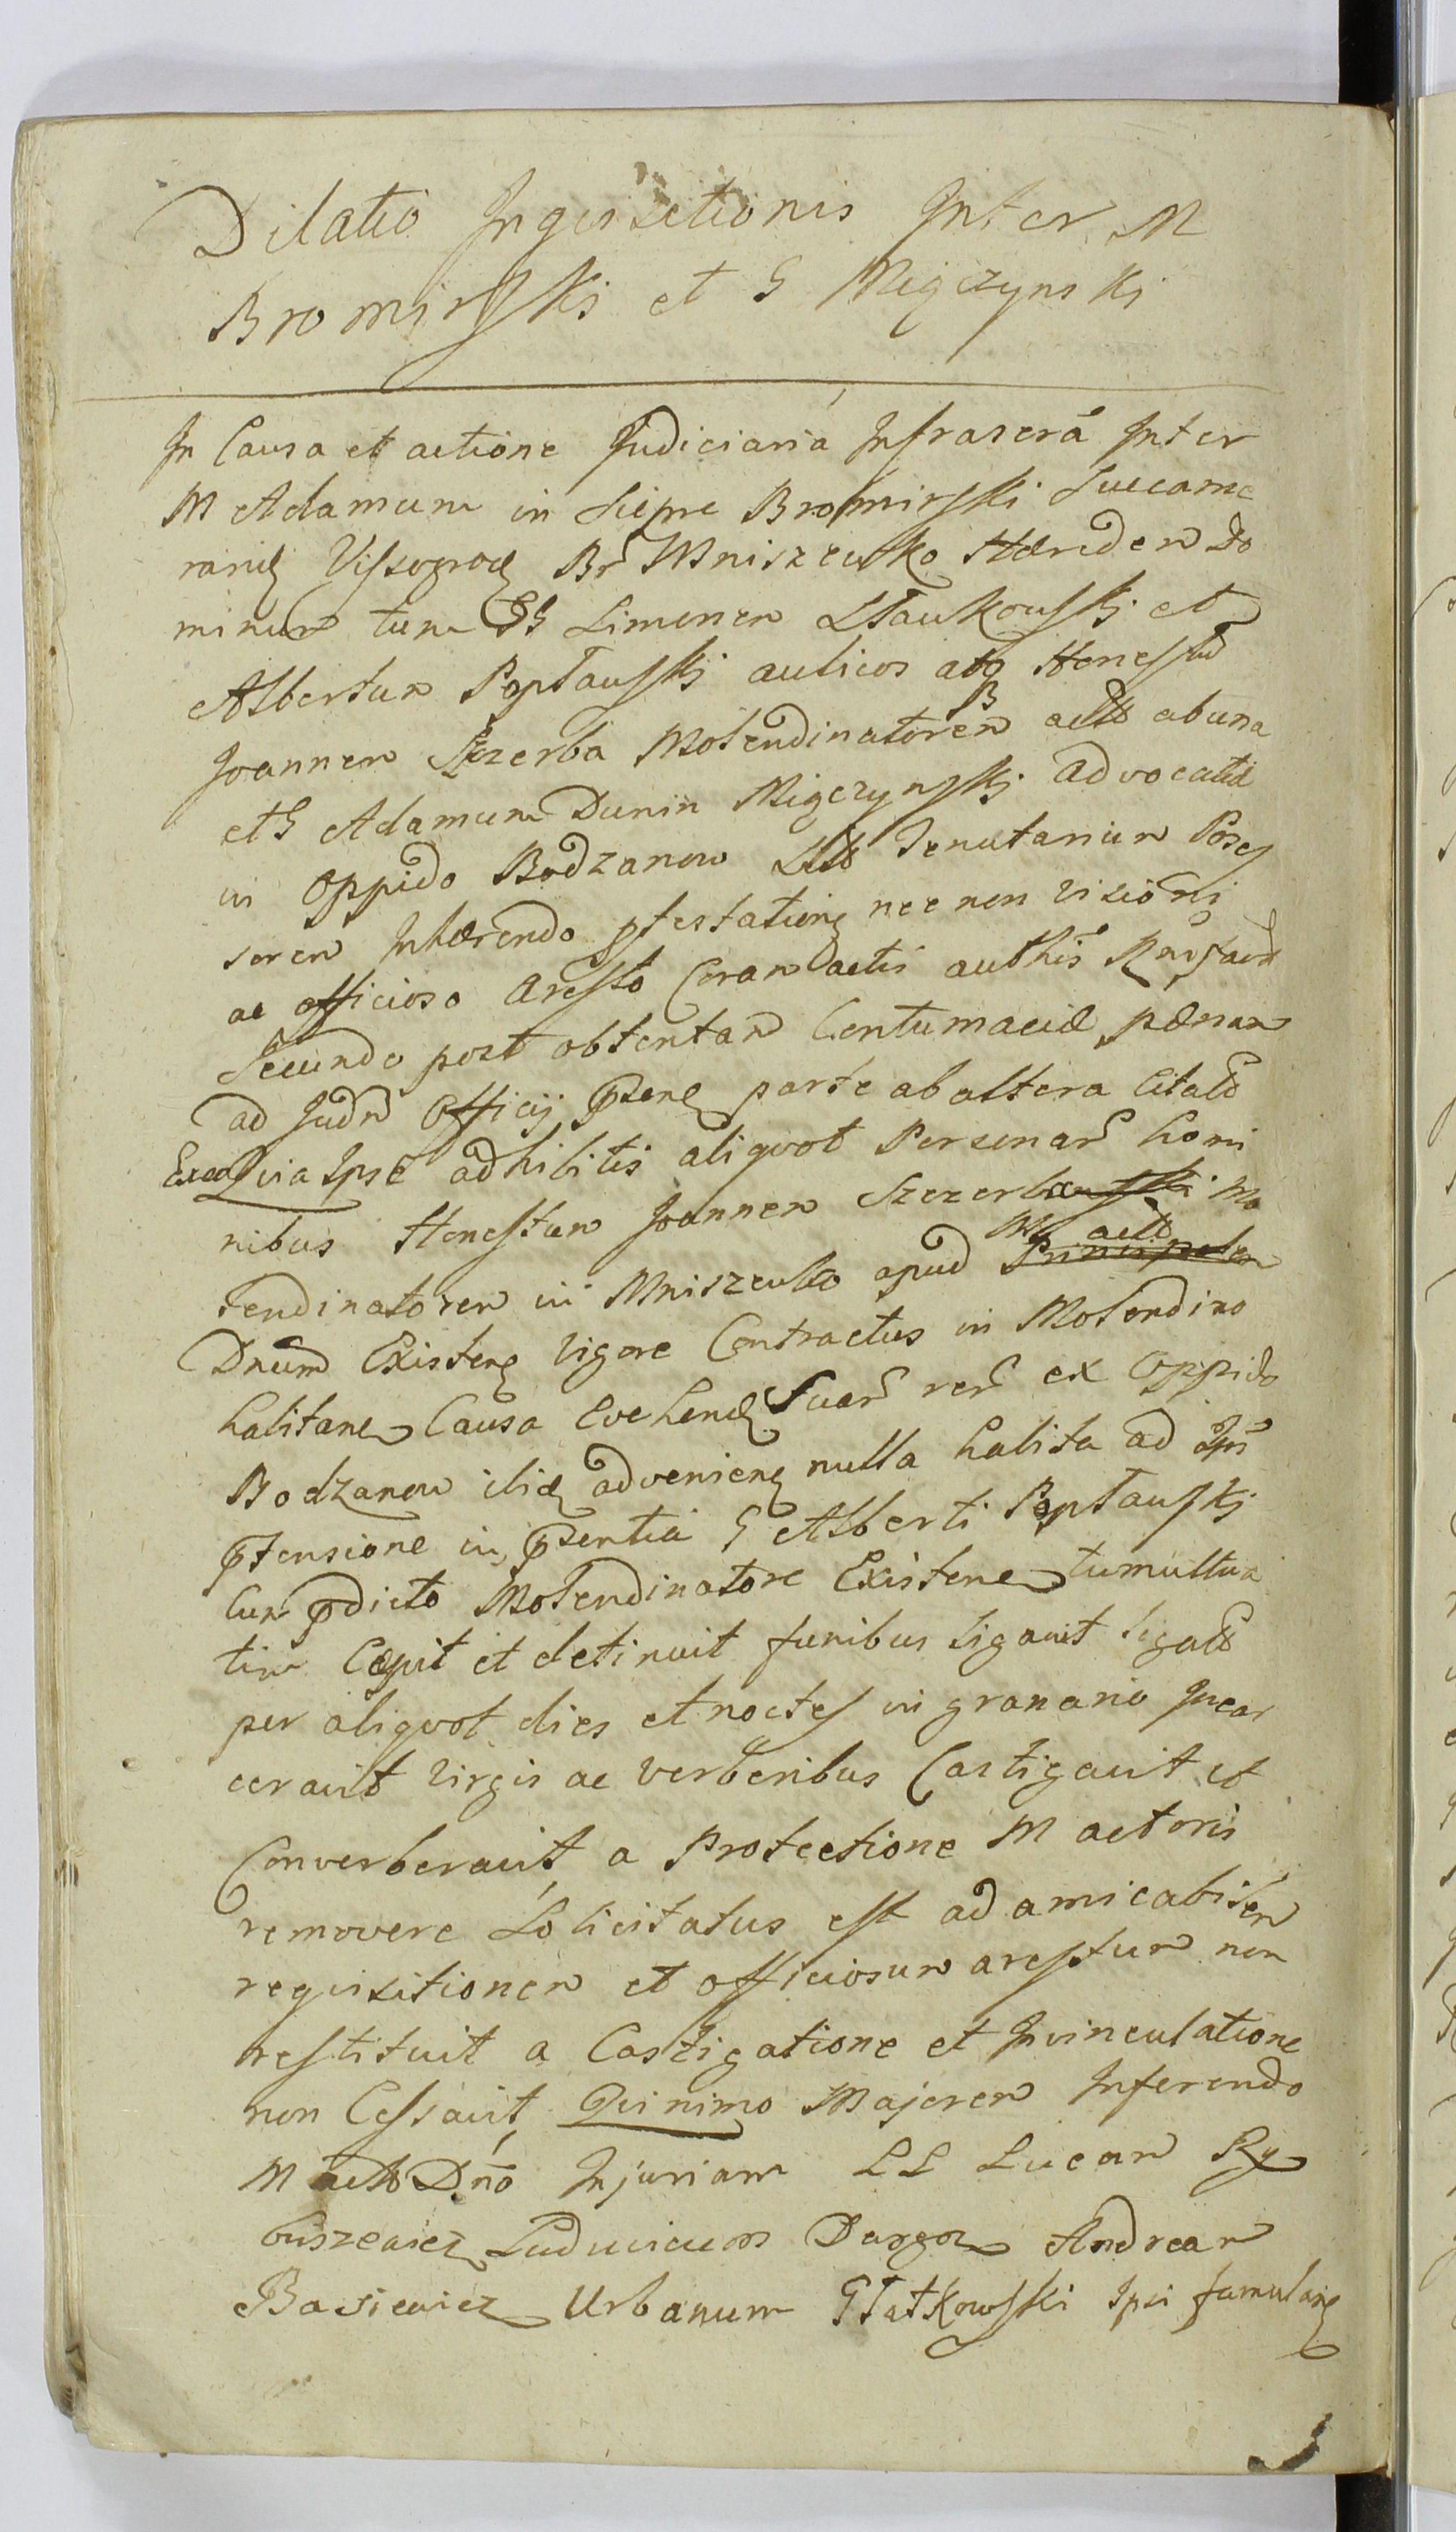 Dilatio Inquisitionis Inter M
Bromirski et G Mięczynski
In Causa et actione Judiciaria Infrascrã Inter
M Adamum in Siepre Bromirski Succame
rariũ Vissogrod Br Mniszewko Hæreden Do
minum tum GG Simonen Słaukouski et
Albertum Poptauski aulicos atq Honestũ
Joannen Szczerba Molendinatoren B actt ab una
et G Adamum Dunin Mięczynski advocatiæ
in Oppido Bodzanow Tenutarium Posses
soren Inhærendo ptestationi nec non visioni
ac officioso aresto Coram actis authis
Secundo post obtentam Contumaciæ pœnam
ad Judm Officij psens parte ab altera Citatt
Exeo Quia Ipse adhibitis aliqvot Personar homi
nibus Honestum Joannen Szczerba Mo
lendinatoren in Mniszewko apud M actt Principalem
Dnum Existens vigore Contractus in Molendino
habitanẽ Causa Evehend Suar rer ex Oppido
Bodzanow ibid adveniens nulla habita ad Ips
ptensione in psentia G Alberti Poptauski
Cum pdicto Molendinatore Existenẽ tumultua
tim Cœpit et detinuit funibus ligavit ligatt
per aliqvot dies et noctes in granario Incar
ceravit virgis ac verberibus Castigavit et
Converberavit, a Protectione M actoris
removere Solicitatus est ad amicabilem
requisitionem et officiosum arestum non
restituit a Castigatione et Invinculatione
non Cessavit, Quinimo Majorem Inferendo
M actt Dno Injuriam LL Lucam Ry
biszewicz Ludovicum Durgo Andream
Basiewicz Urbanum Głatkowski Ipsi famulanẽ